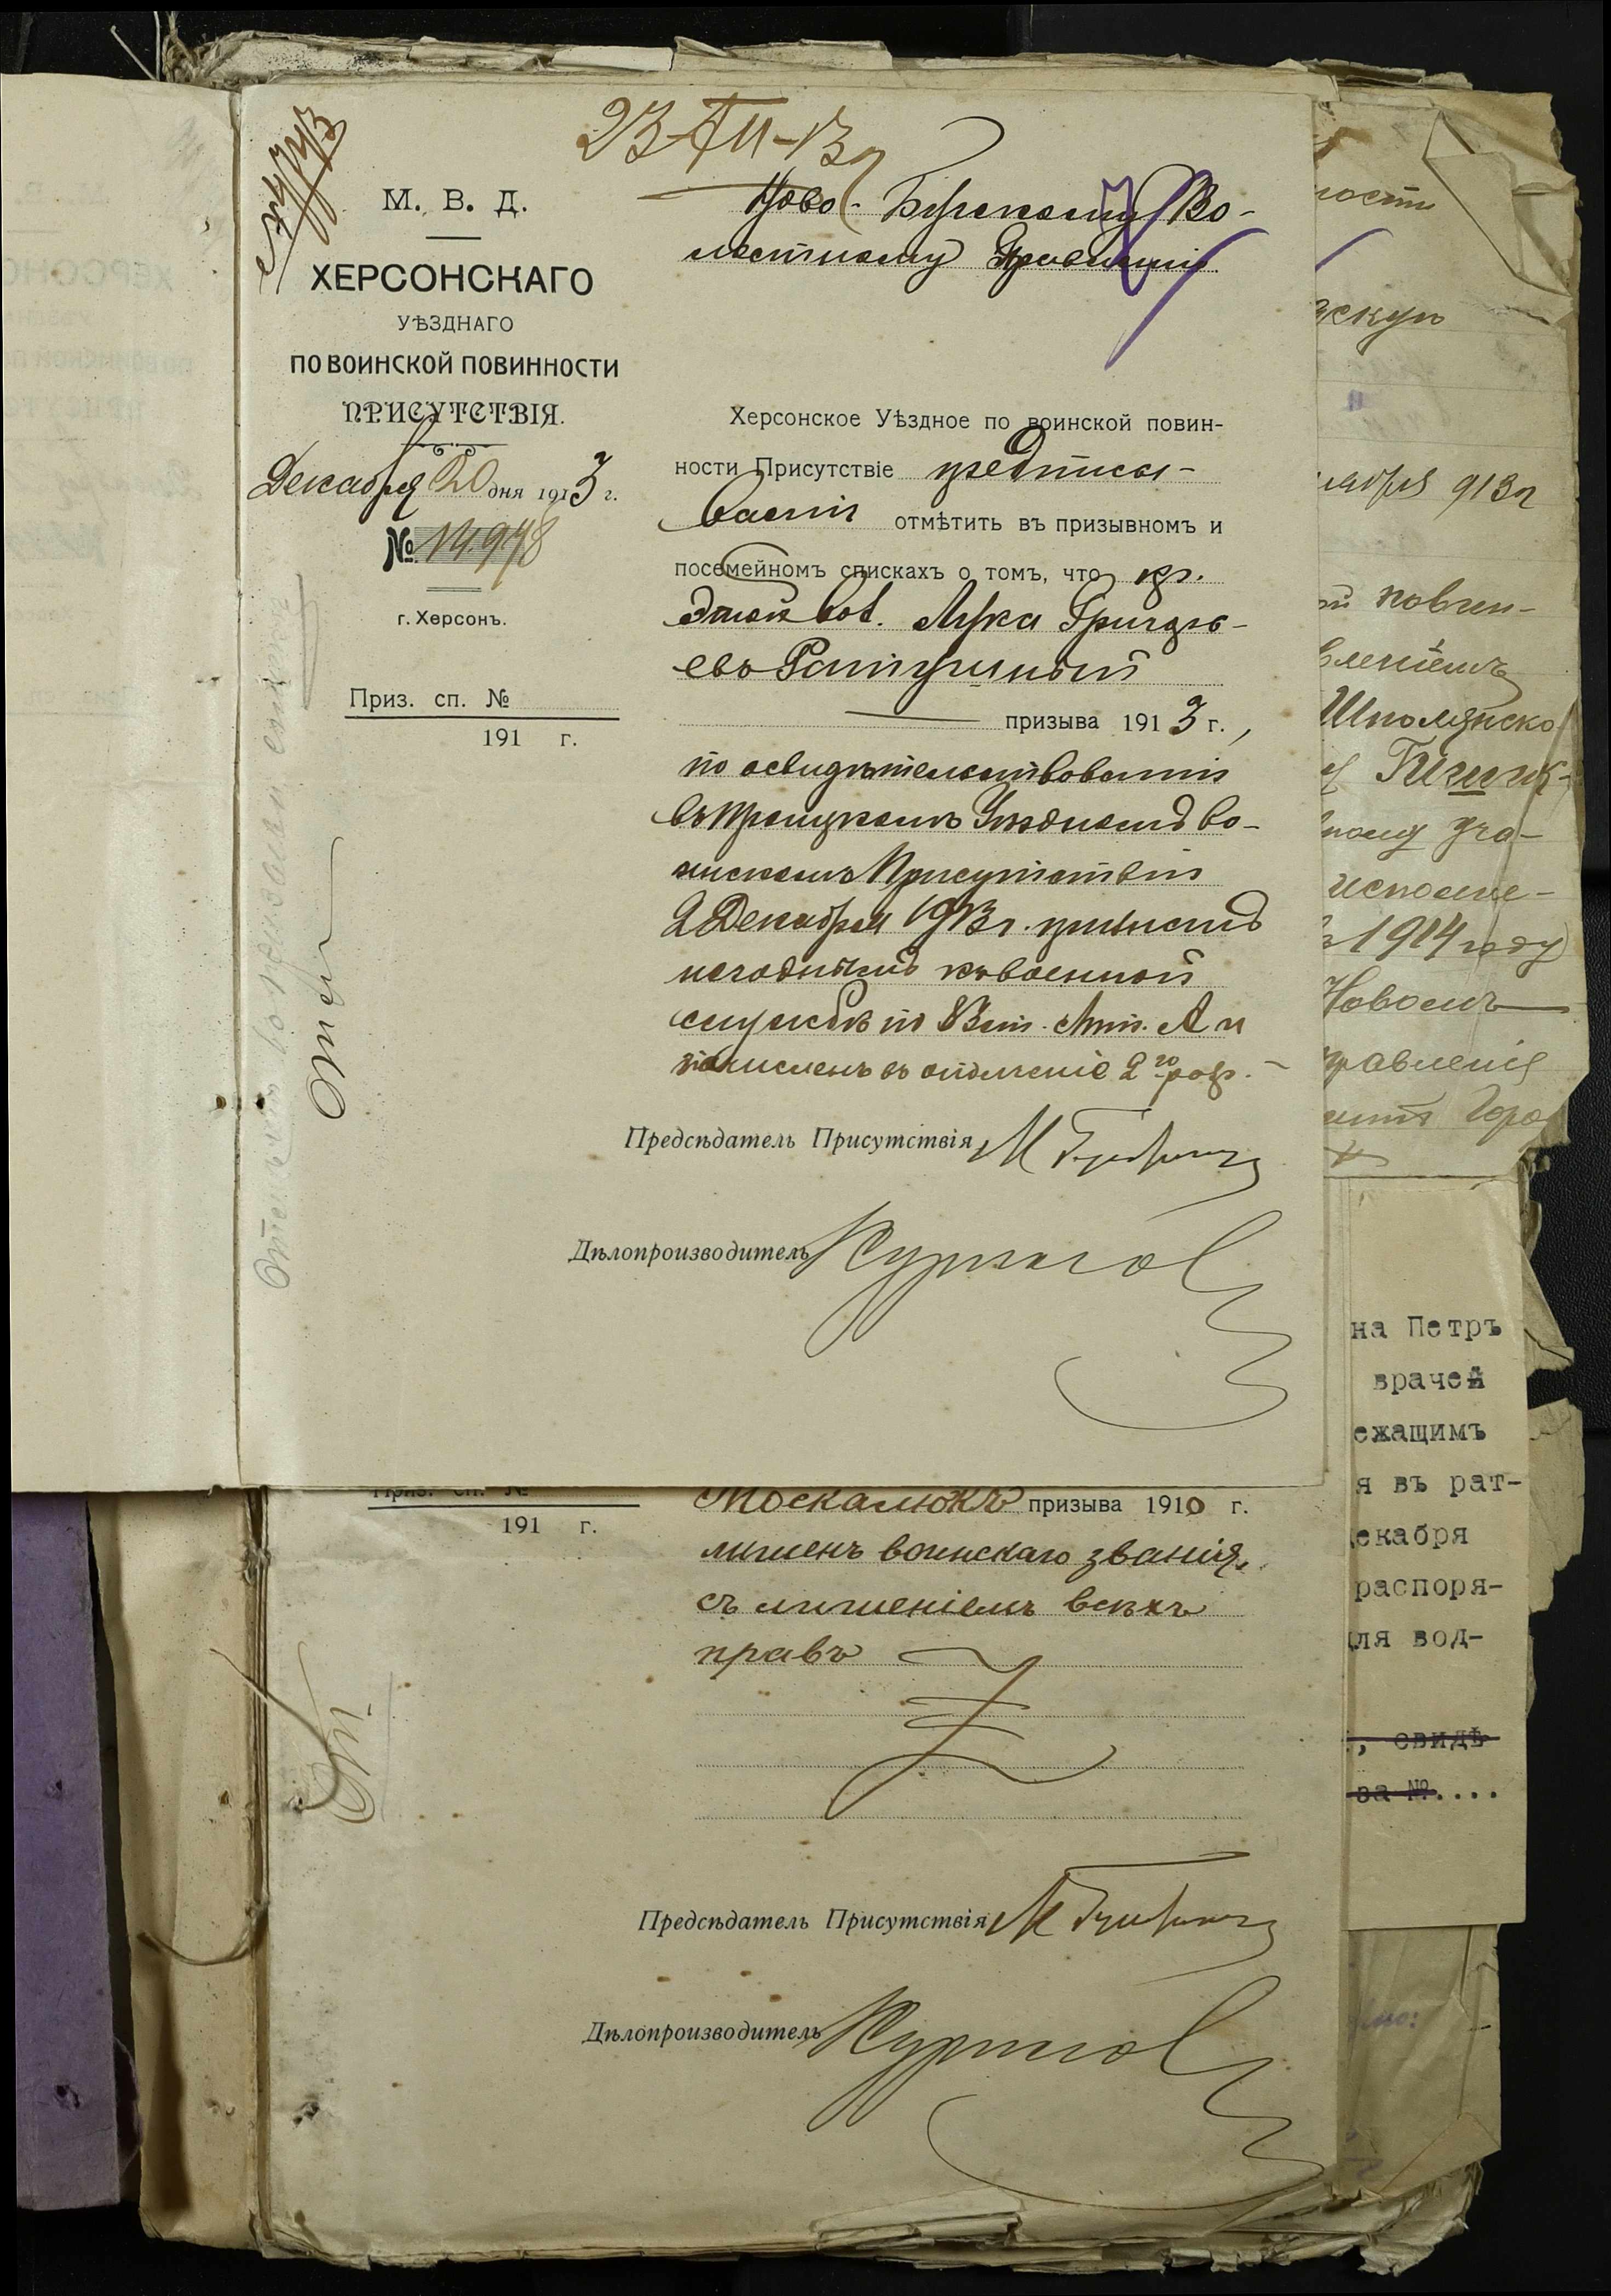 23-XII-13 г
М. В. Д.
ХЕРСОНСКАГО
УѢЗДНАГО
ПО ВОИНСКОЙ ПОВИННОСТИ
ПРИСУТСТВІЯ.
Декабря 20 дня 1913 г.
№ 14.948
г. Херсонъ.
Приз. сп. №
191 г.
Ново-Бугскому Во-
лостному Правленію
Херсонское Уѣздное по воинской повин-
ности Присутствіе предписы-
ваетъ отмѣтить въ призывномъ и
посемейномъ спискахъ о томъ, что кр.
этой вол. Лука Григорь-
евъ Ратушный
призыва 1913 г.,
по освидѣтельствованіи
въ Троицкомъ Уѣздномъ во-
инскомъ Присутствіи
2 Декабря 1913 г. признанъ
негоднымъ къ военной
службѣ по 83 ст. лит. А и
зачисленъ въ ополченіе 2го разр.
Предсѣдатель Присутствія
Дѣлопроизводитель
Приз. сп. №
191 г.
Москалюкъ призыва 1910 г.
лишенъ воинскаго званія,
съ лишеніемъ всѣхъ
правъ
Предсѣдатель Присутствія
Дѣлопроизводитель
ности
скую
ября 913 г
повин-
вленіемъ
Шполянско
ному уча-
исполне-
1914 году
Новомъ
правленія
на Петръ
врачей
ежащимъ
я въ рат-
екабря
распоря-
ля вод-
, свидѣ
за №....